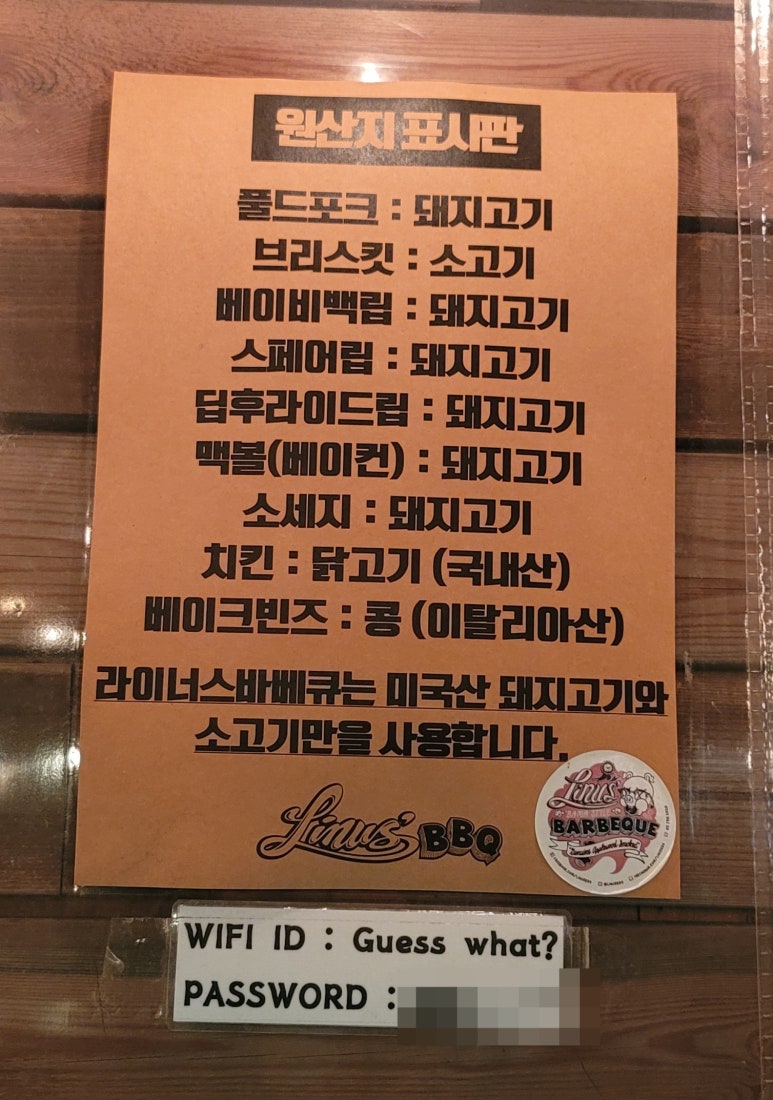 원산지 표시판
풀드포크 : 돼지고기
브리스킷 : 소고기
베이비백립 : 돼지고기
스페어립 : 돼지고기
딥후라이드립 : 돼지고기
맥볼(베이컨) : 돼지고기
소세지 : 돼지고기
치킨 : 닭고기 (국내산)
베이크빈즈 : 콩 (이탈리아산)
라이너스바베큐는 미국산 돼지고기와
소고기만을 사용합니다.
Linus' BBQ
Linus'
BARBEQUE
WIFI ID : Guess what?
PASSWORD :